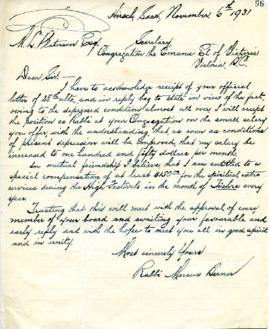 96
Hirsch, Sask, November 6th 1931
Secretary
Congregation the Emanu El of Victoria
Victoria B.C.
Dear Sir:-
I have to acknowledge receipt of your official
letter of 28th ulto, and in reply beg to state in view of the fact,
owing to the depressed conditions almost all over, I will accept
the position as Rabbi of your Congregation on the small salary
you offer with the understanding, that as soon as conditions
of present depression will be improved, that my salary be
increased to one hundred and fifty dollars per month
In mutual friendship & feeling that I am entitled to a
special compensation of at least $150.00 for the spiritual extra
services during the High Festivals in the month of Tishre every
year.
Trusting that this will meet with the approval of every
member of your board and awaiting your favourable and
early reply and with the hopes to meet you all in good spirit
and in unity.
Most sincerely Yours
Rabbi Marcus Berner